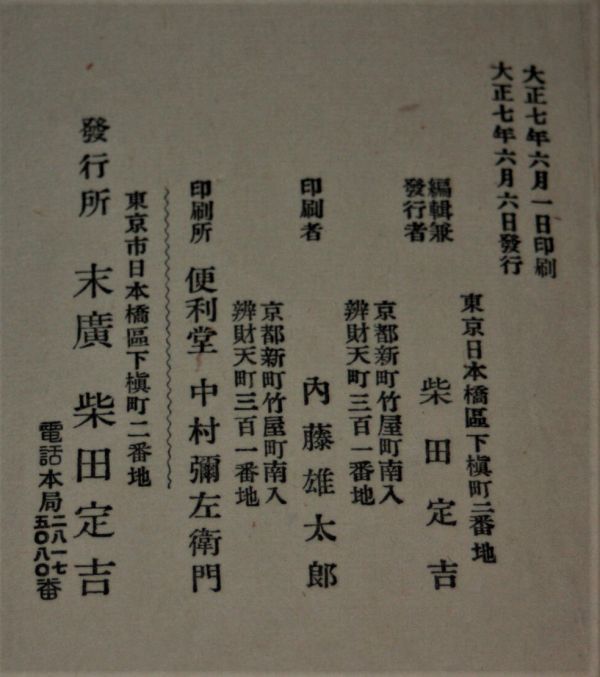 大正七年六月一日印刷
大正七年六月六日發行
東京日本橋區下槇町二番地
編輯兼
發行者
柴田定吉
京都新町竹屋町南入
辨財天町三百一番地
印刷者
內藤雄太郎
京都新町竹屋町南入
辨財天町三百一番地
印刷所
便利堂 中村彌左衛門
東京市日本橋區下槇町二番地
發行所 末廣 柴田定吉
電話本局二八一七
五〇八〇番